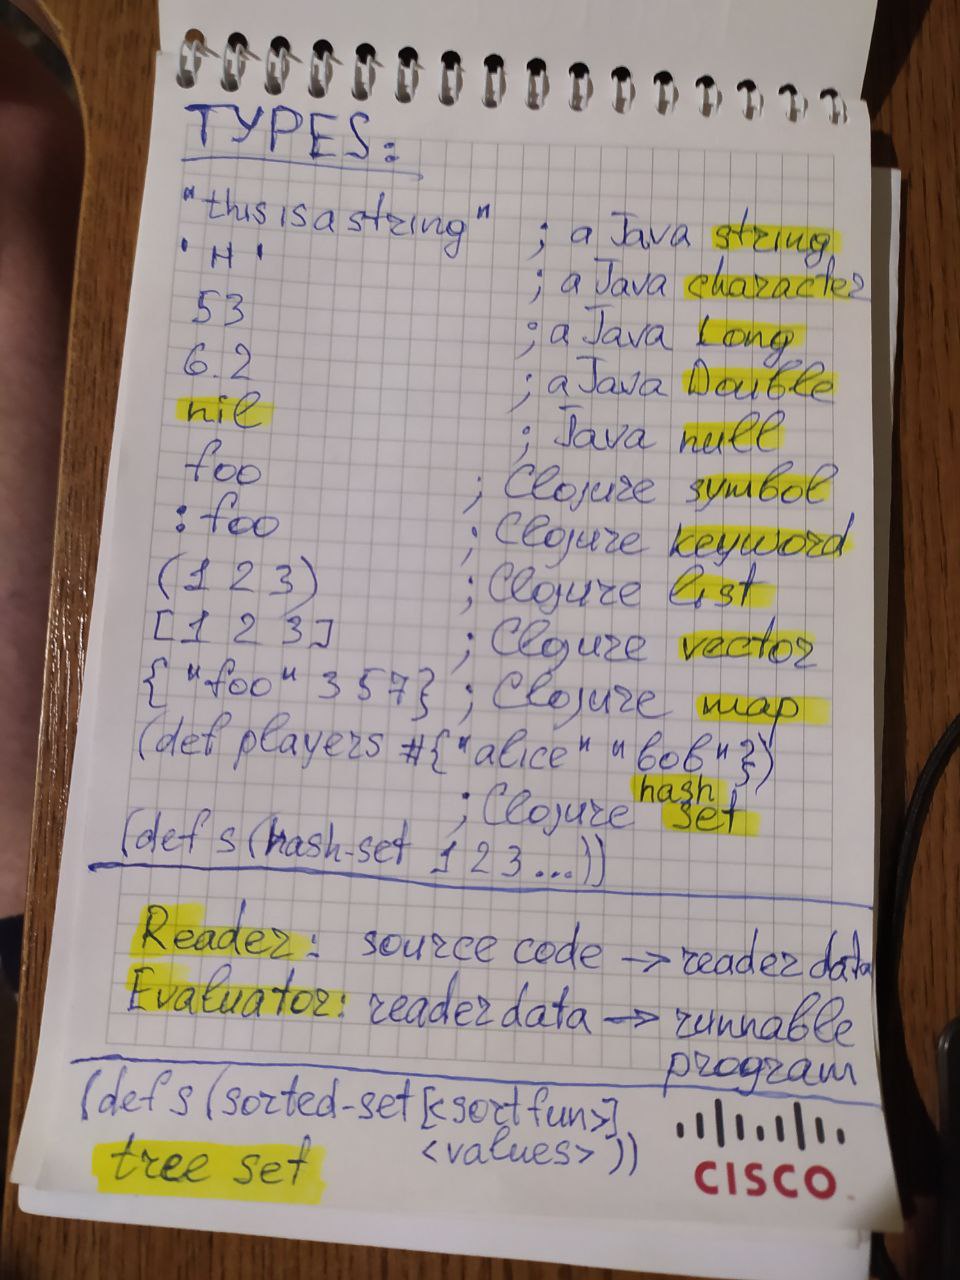 TYPES:
"this is a string" ; a Java string
'H' ; a Java character
53 ; a Java Long
6.2 ; a Java Double
nil ; Java null
foo ; Clojure symbol
:foo ; Clojure keyword
(1 2 3) ; Clojure list
[1 2 3] ; Clojure vector
{"foo" 3 5 7} ; Clojure map
(def players #{"alice" "bob"})
; Clojure hash set
(def s (hash-set 1 2 3...))
Reader: source code -> reader data
Evaluator: reader data -> runnable
program
(def s (sorted-set [<sortfun>]
<values>))
tree set
CISCO